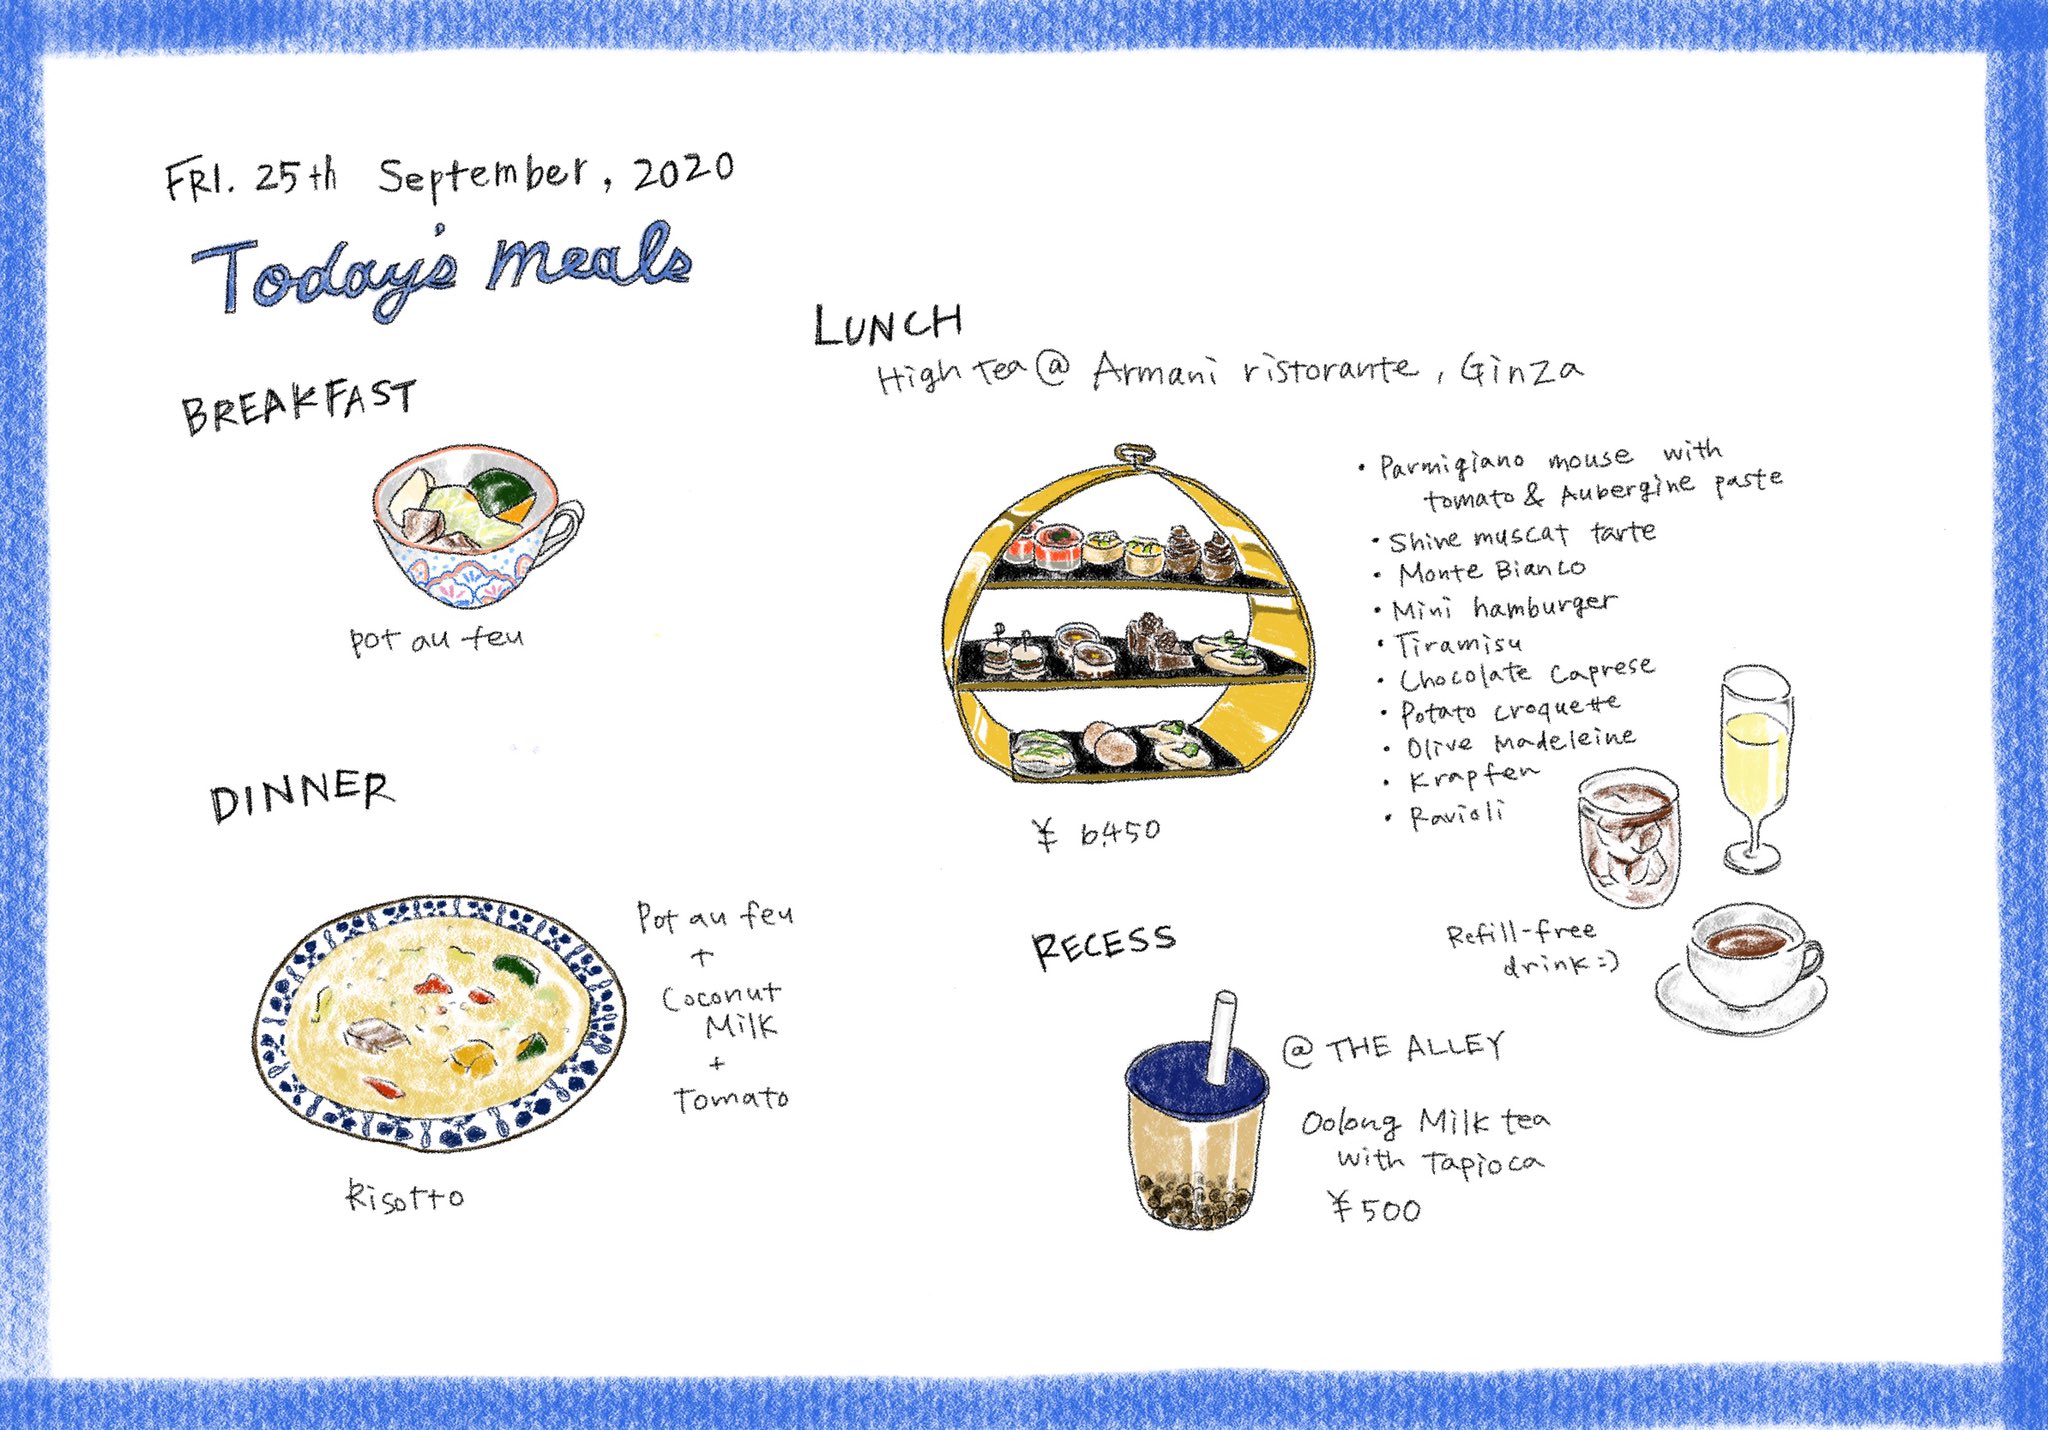 FRI. 25th September, 2020
Today's meals
BREAKFAST
pot au feu
LUNCH
High Tea @ Armani ristorante, Ginza
• Parmigiano mouse with
tomato & Aubergine paste
• Shine muscat tarte
• Monte Bianco
• Mini hamburger
• Tiramisu
• Chocolate Caprese
• Potato croquette
• Olive Madeleine
• Krapfen
• Ravioli
¥ 6,450
Refill-free
drink=)
DINNER
Pot au feu
+
Coconut
Milk
+
Tomato
Risotto
RECESS
@ THE ALLEY
Oolong Milk tea
with Tapioca
¥500